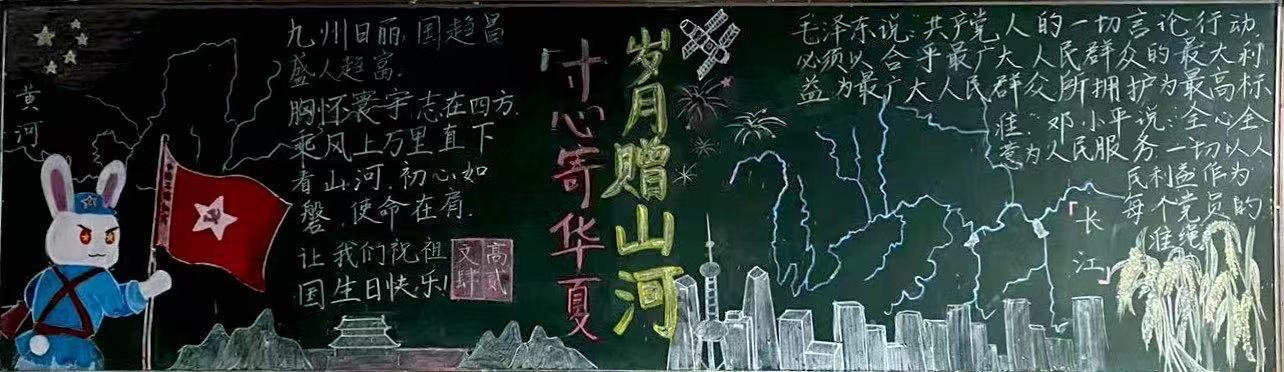 黄河
九州日丽,国趋昌
盛人趋富.
胸怀寰宇,志在四方.
乘风上万里,直下
看山河.初心如
磐,使命在肩.
让我们祝祖
国生日快乐!
高贰
文肆
岁月赠山河
寸心寄华夏
毛泽东说:共产党人的一切言论行动,
必须以合乎最广大人民群众的最大利
益,为最广大人民群众所拥护为最高标
准.邓小平说:全心全
意为人民服务,一切以人
民利益作为
每个党员的
准绳
「长江」